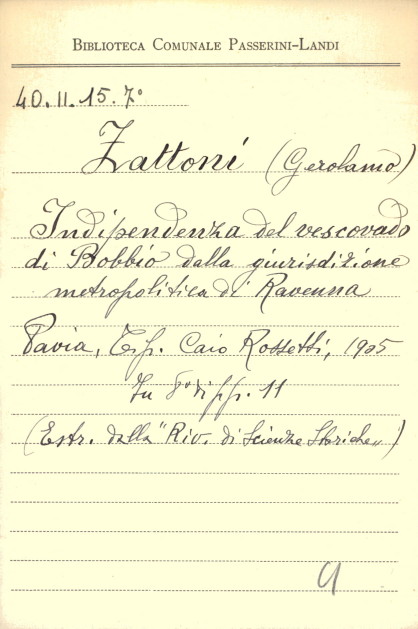 BIBLIOTECA COMUNALE PASSERINI-LANDI
40.II.15.7°
Zattoni (Gerolamo)
Indipendenza del vescovado
di Bobbio dalla giurisdizione
metropolitica di Ravenna
Pavia, Tip. Caio Rossetti, 1905
In 8° di pp. 11
(Estr. dalla "Riv. di Scienze Storiche„)